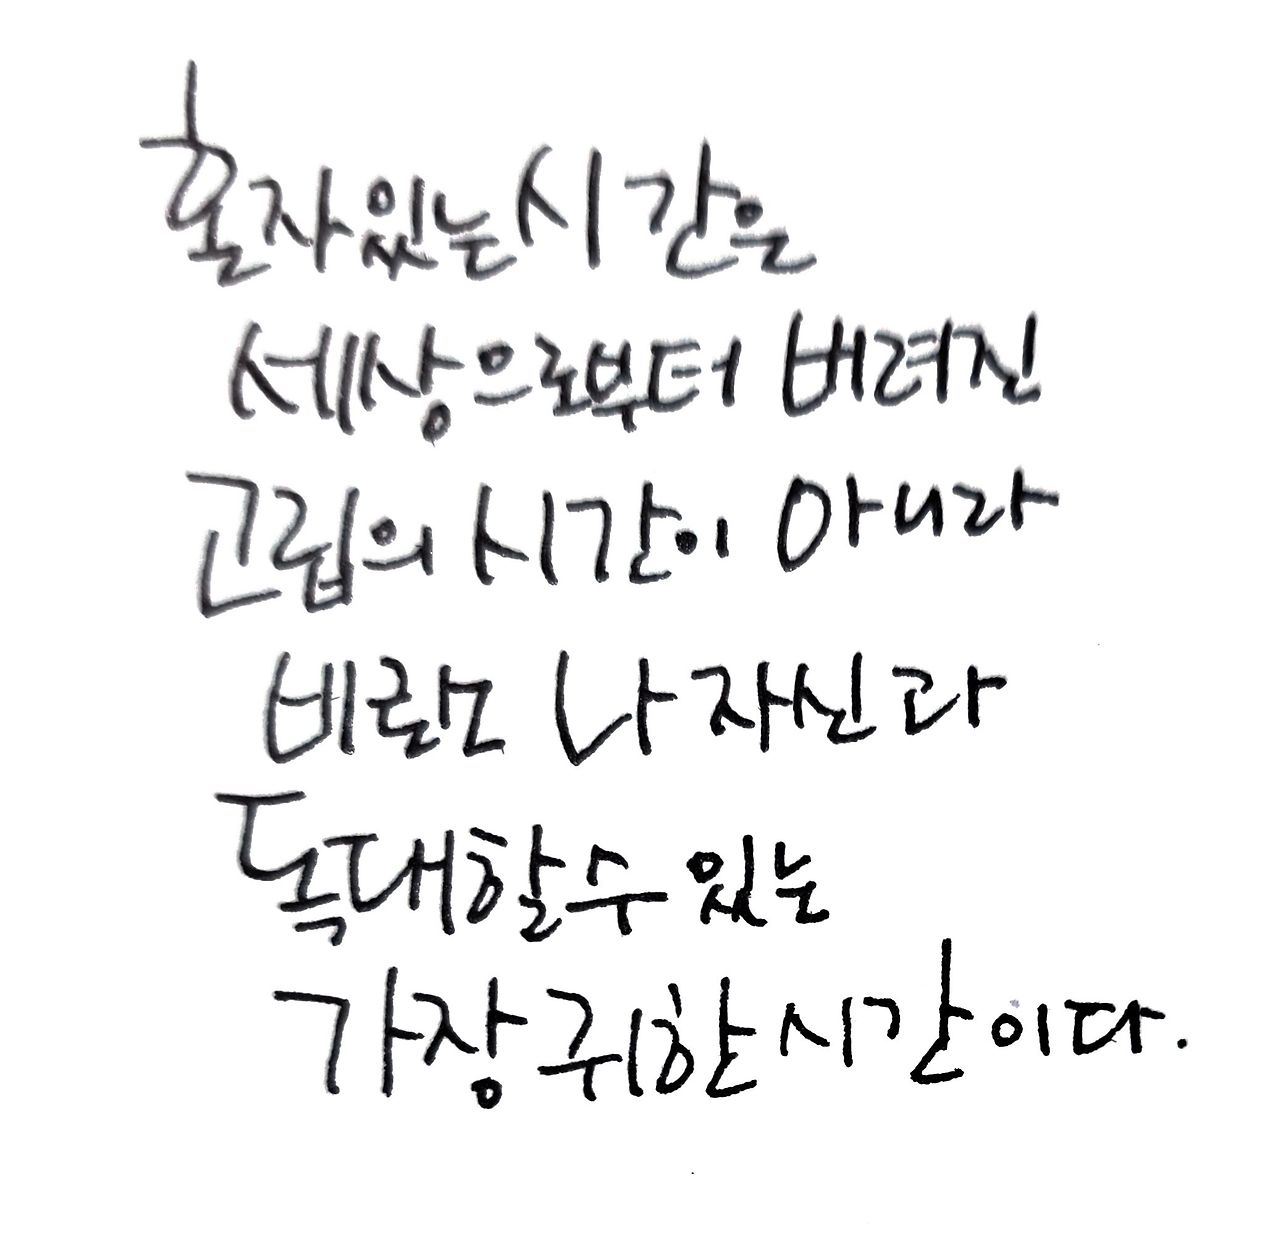 혼자있는 시간은
세상으로부터 버려진
고립의 시간이 아니라
비로소 나 자신과
독대할수 있는
가장 귀한 시간이다.